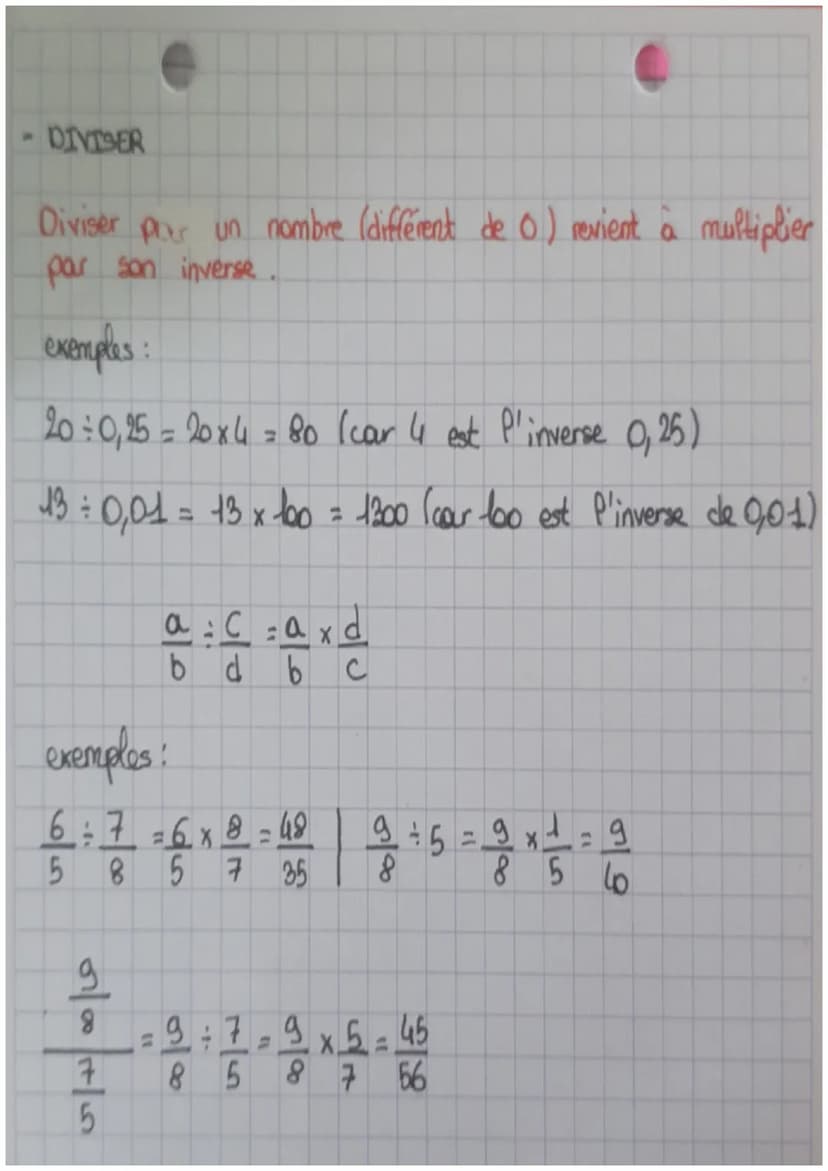 - DIVISER
Diviser par un nombre (différent de 0) revient à multiplier
par son inverse.
exemples :
20 ÷ 0,25 = 20 x 4 = 80 (car 4 est l'inverse 0,25)
13 ÷ 0,01 = 13 x 100 = 1300 (car 100 est l'inverse de 0,01)
a/b ÷ c/d = a/b x d/c
exemples :
6/5 ÷ 7/8 = 6/5 x 8/7 = 48/35 | 9/8 ÷ 5 = 9/8 x 1/5 = 9/40
(9/8)/(7/5) = 9/8 ÷ 7/5 = 9/8 x 5/7 = 45/56